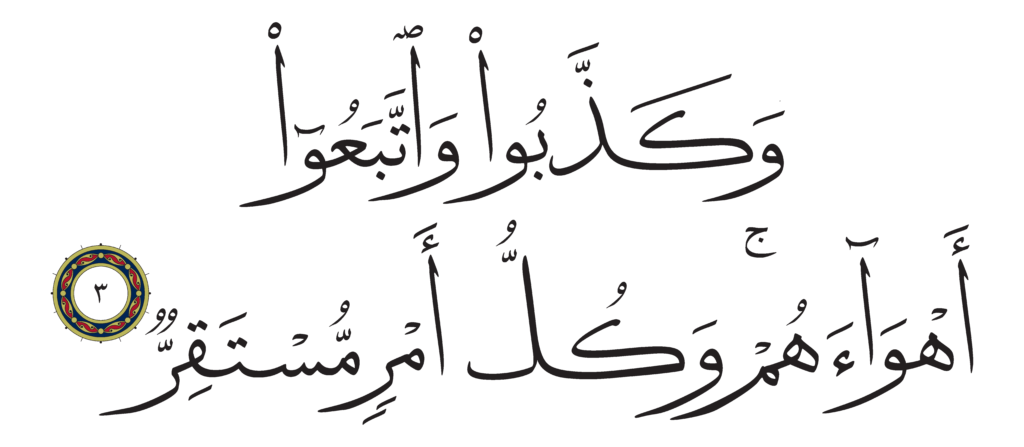 وَكَذَّبُوا۟ وَٱتَّبَعُوٓا۟
أَهْوَآءَهُمْ ۚ وَكُلُّ أَمْرٍ مُّسْتَقِرٌّ ٣